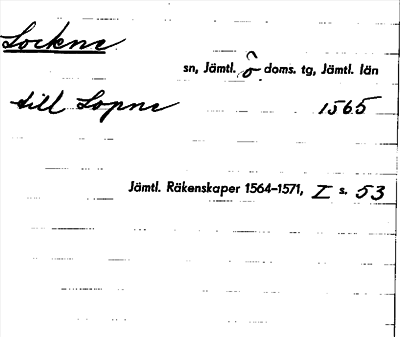 Lockne
sn, Jämtl. ö doms. tg, Jämtl. län
till Lopne 1565
Jämtl. Räkenskaper 1564-1571, I s. 53